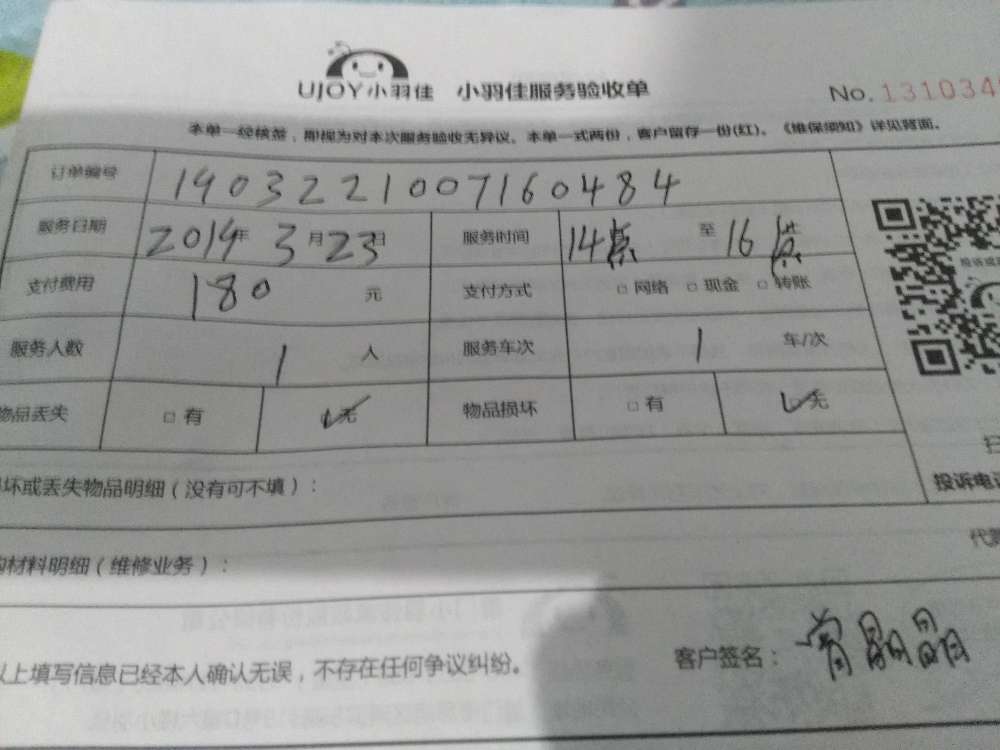 UJOY小羽佳 小羽佳服务验收单 No.131034
本单一经核签，即视为对本次服务验收无异议。本单一式两份，客户留存一份(红)。《维保须知》详见背面。
订单编号 190322210071160484
服务日期 2019年 3月23日 服务时间 14 至 16
支付费用 180 元 支付方式 □网络 □现金 □转账
服务人数 1 人 服务车次 1 车/次
物品丢失 □有 ☑无 物品损坏 □有 ☑无
坏或丢失物品明细（没有可不填）： 投诉电
材料明细（维修业务）：
以上填写信息已经本人确认无误，不存在任何争议纠纷。 客户签名： 晶晶